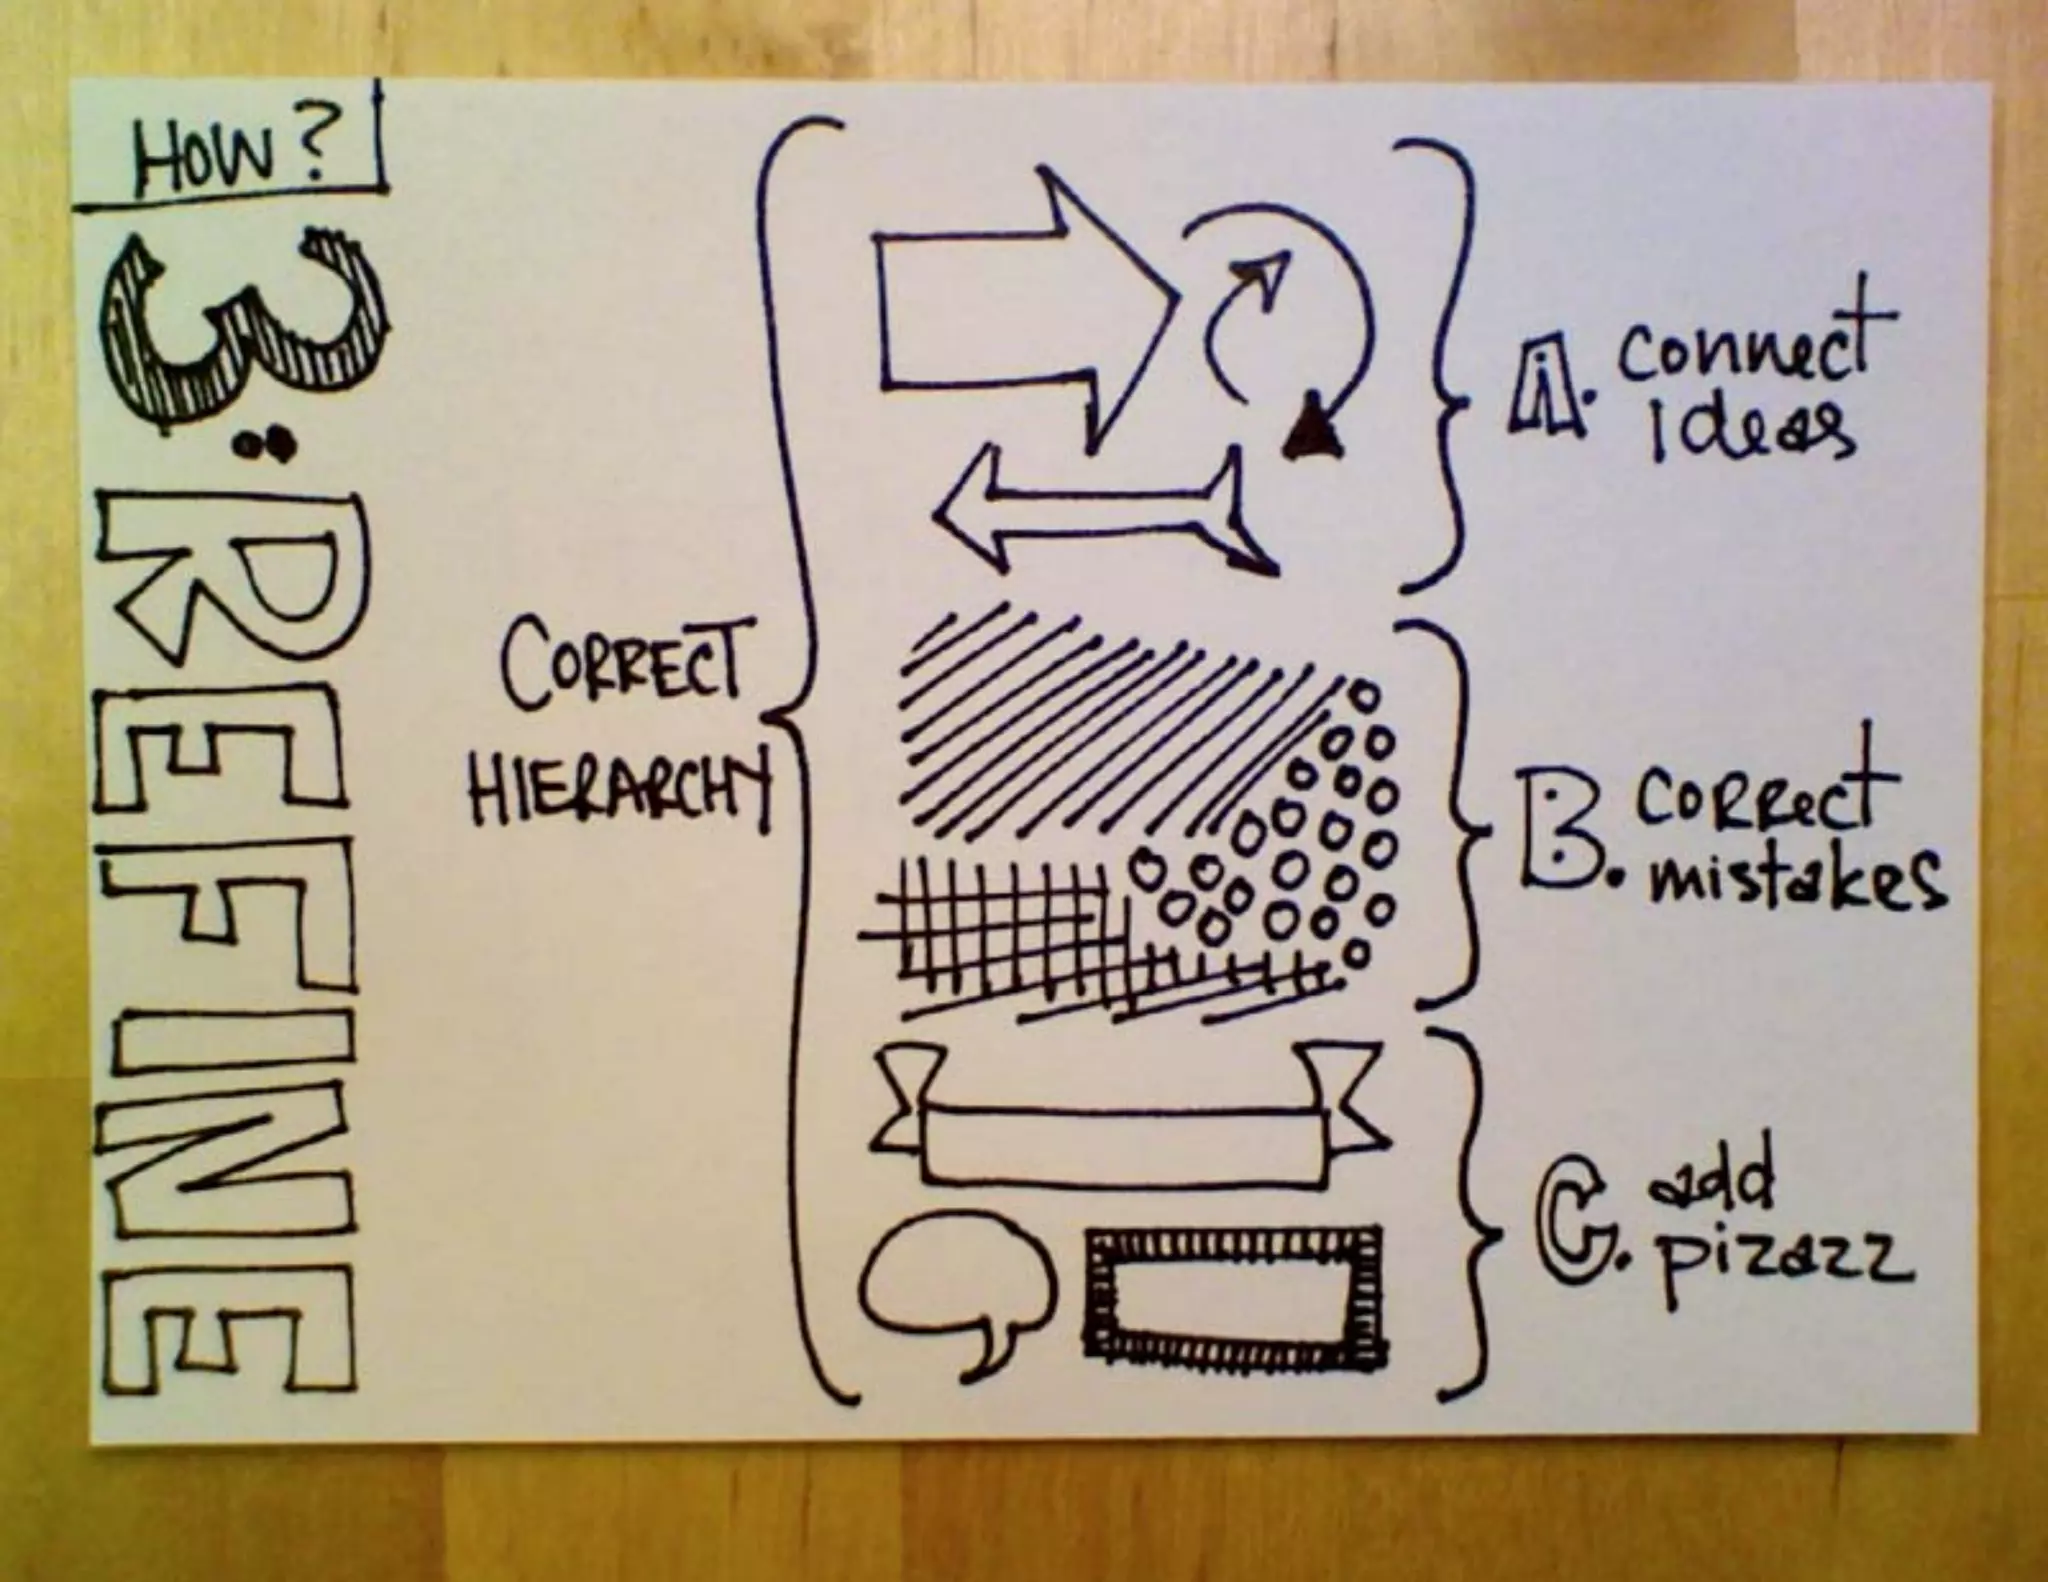 HOW?
3: REFINE
CORRECT
HIERARCHY
A. connect
ideas
B. correct
mistakes
C. add
pizazz